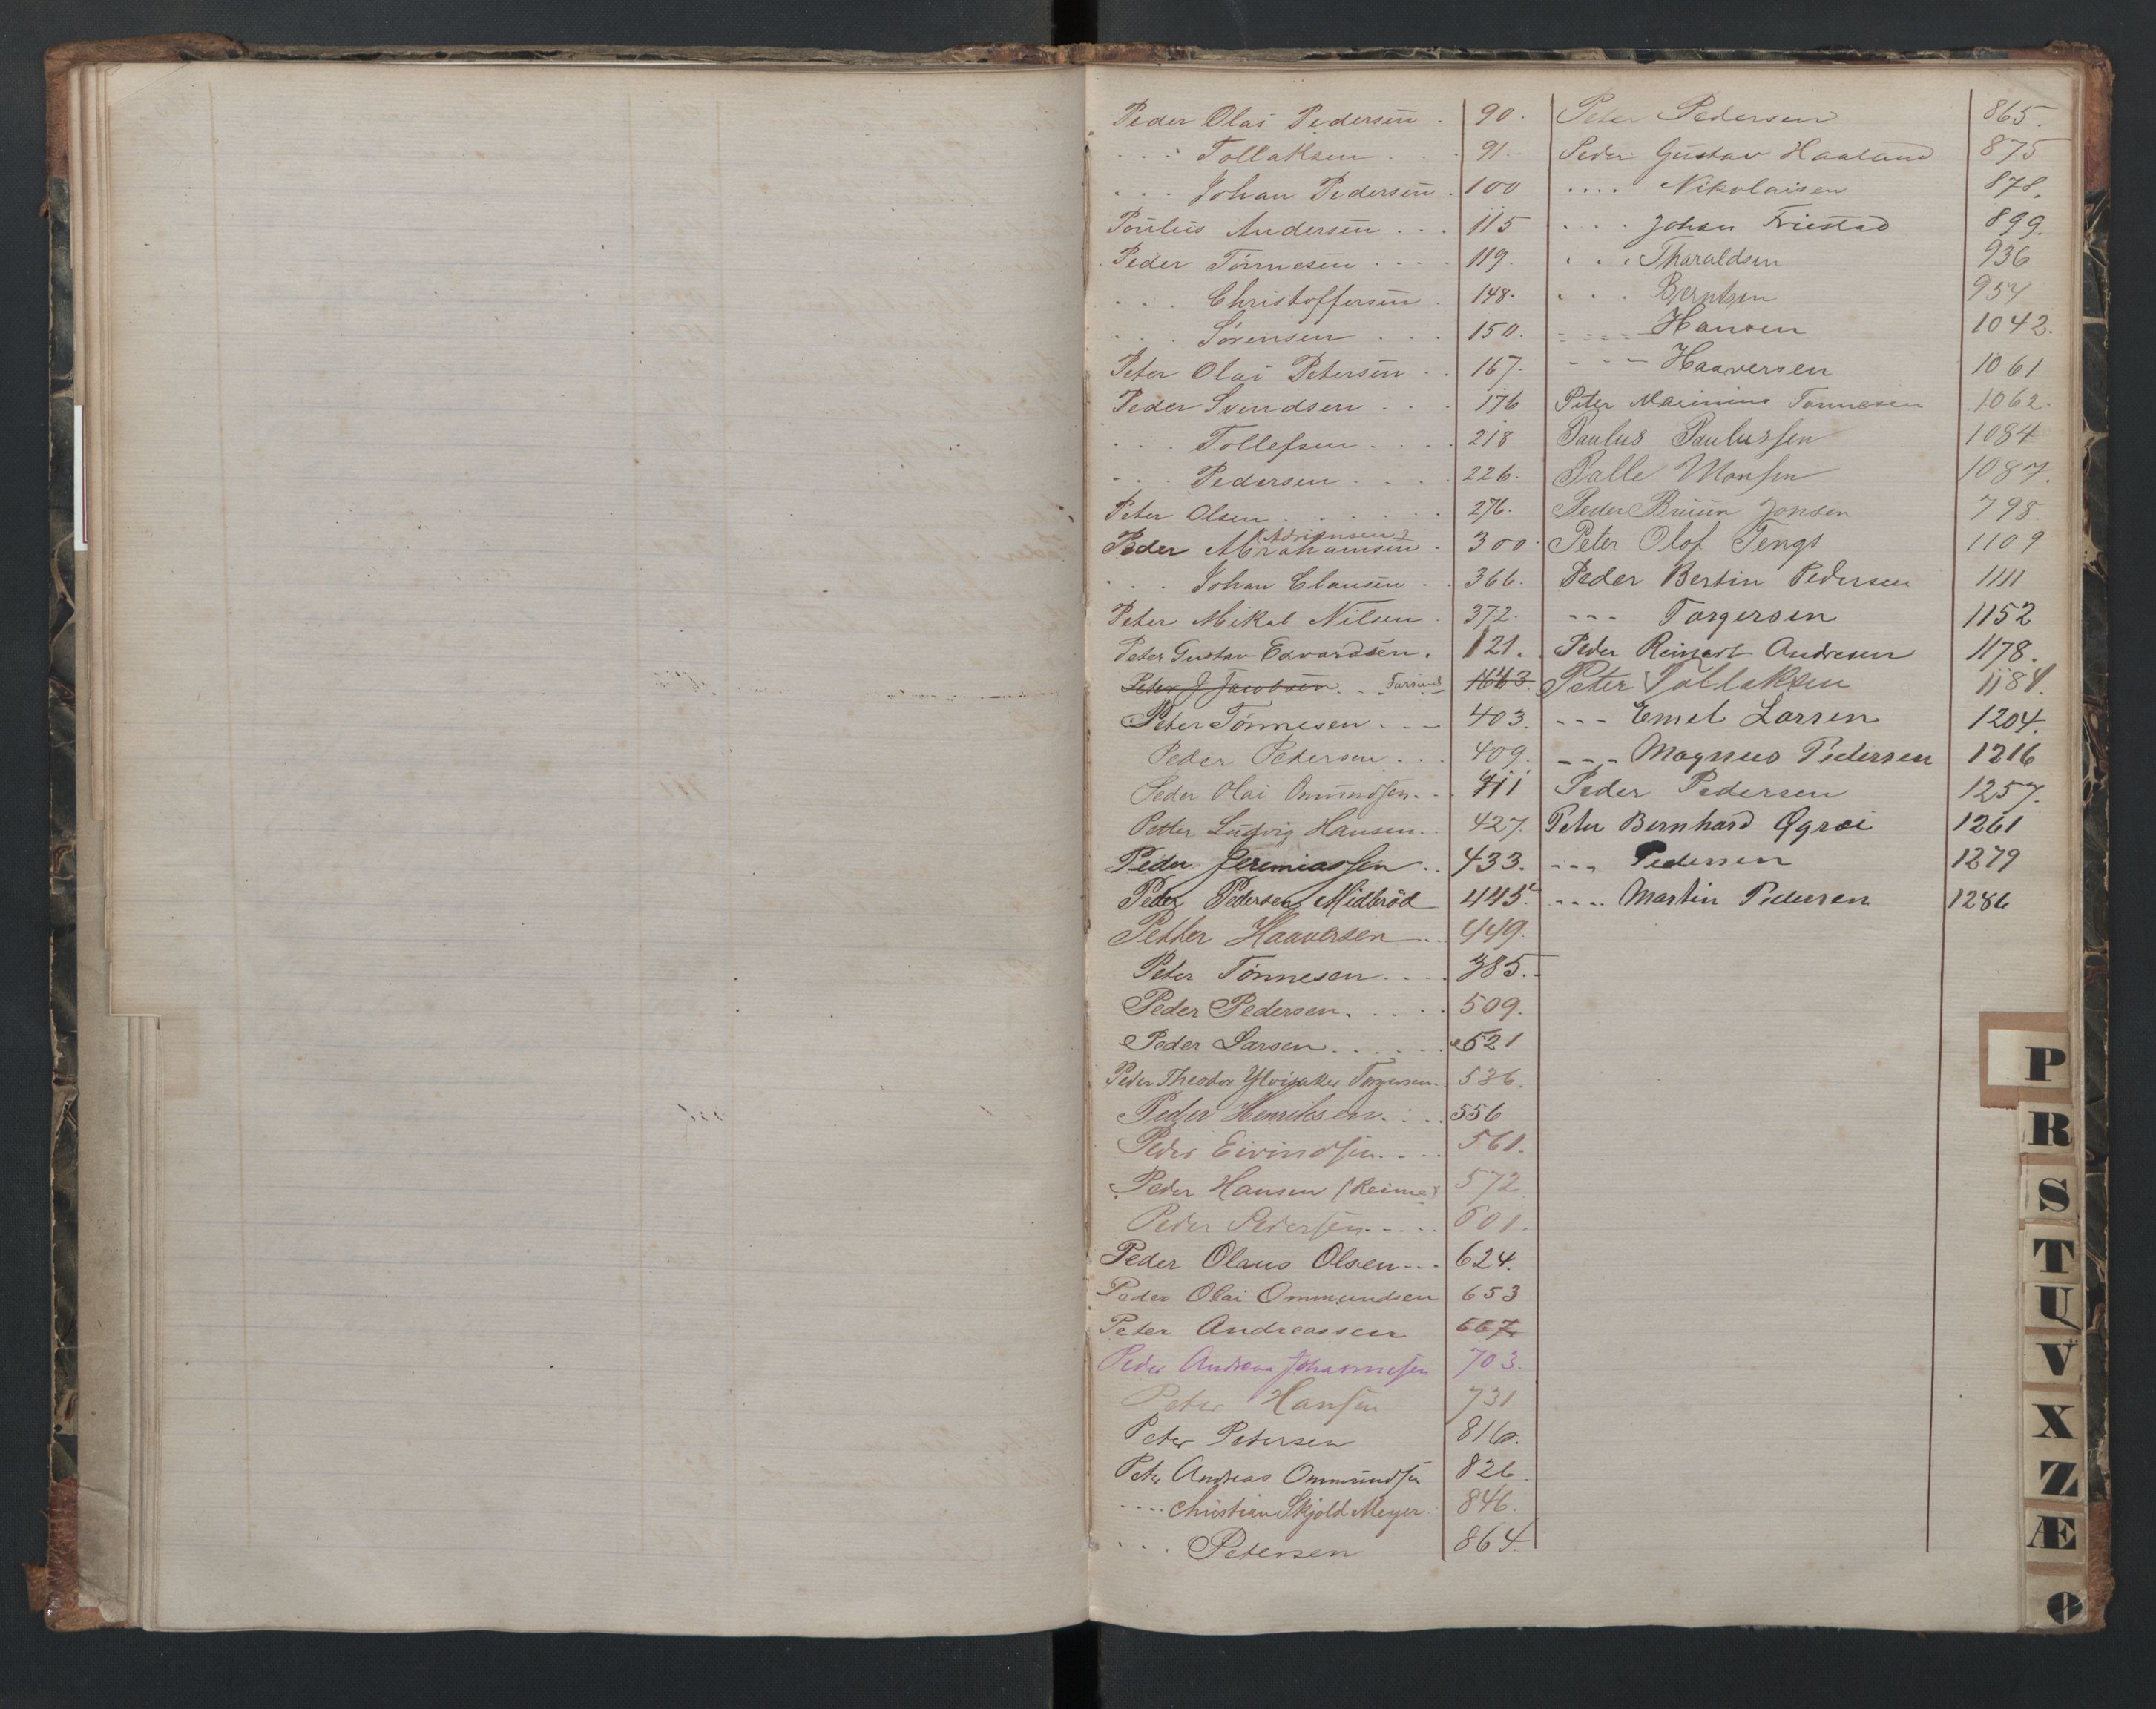 Peder Olai Pedersen . 90.
. . . Tollaksen . . . 91.
. . . Johan Pedersen . 100
Paulus Andersen . . . 115
Peder Tönnesen . . . . 119.
. . . Christoffersen . 148.
. . . Sörensen . . . 150.
Peter Olai Petersen . . 167.
Peder Svendsen . . . 176
. . . Tollefsen . . . . 218
. . . Pedersen . . . . 226.
Peter Olsen . . . . . . 276.
Adriansen
Peder Abrahamsen . 300
. . . Johan Clausen . . 366.
Peter Mikal Nilsen . 372.
Peter Gustav Edvardsen . 121.
Peter J Jacobsen . . Farsund 1663
Peter Tönnesen . - - 403.
Peder Pedersen . . . 409.
Peder Olai Ommundsen . . 411
Petter Ludvig Hansen . . 427.
Peder Jeremiassen . . 433.
Peder Pedersen Midbröd 445.
Petter Haaversen . . . 449.
Peter Tönnesen . . . . 385.
Peder Pedersen . . . . . 509.
Peder Larsen . . . . . . 521
Peder Theodor Ylvisaker Torgersen . . 536.
Peder Henriksen . . . 556
Peder Eivindsen . . . . 561.
Peder Hansen (Reime) 572
Peder Pedersen . . . . . 601.
Peder Olaus Olsen . . . 624.
Peder Olai Ommundsen 653
Peter Andreassen 667.
Peder Andreas Johannesen 703.
Peter Hansen 731
Peter Petersen 816.
Peter Andreas Ommundsen 826.
. . . . Christian Skjold Meyer 846.
. . . Petersen 864.
Peter Pedersen 865.
Peder Gustav Haaland 875
. . . . Nikolaisen 878.
. . . . Johan Friestad 899.
. . . Tharaldsen 936
. . . Berntsen 954
- - - - Hansen 1042.
- - - Haaversen 1061
Peter Marinius Tönnesen 1062.
Paulus Paulussen 1084
Palle Monsen 1087.
Peder Bruun Jonsen 798
Peter Olof Tengs 1109
Peder Bertin Pedersen 1111
- - - Torgersen 1152
Peder Reinert Andresen 1178.
Peter Tollaksen 1181.
- - - Emel Larsen 1204.
- - - Magnus Pedersen 1216
Peder Pedersen 1257.
Peter Bernhard Ogræi 1261
- - - Pedersen 1279
- - - - Martin Pedersen 1286
P
R
S
T
U
V
X
Z
Æ
Ø